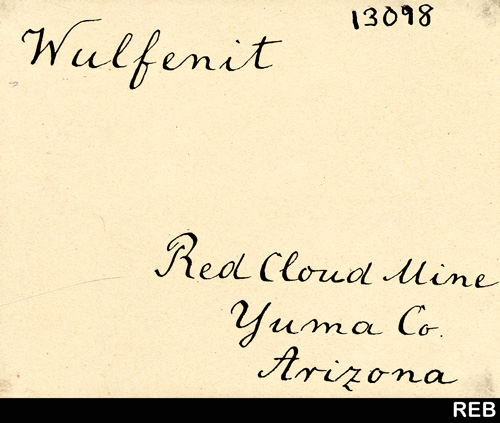 13098
Wulfenit
Red Cloud Mine
Yuma Co.
Arizona
REB